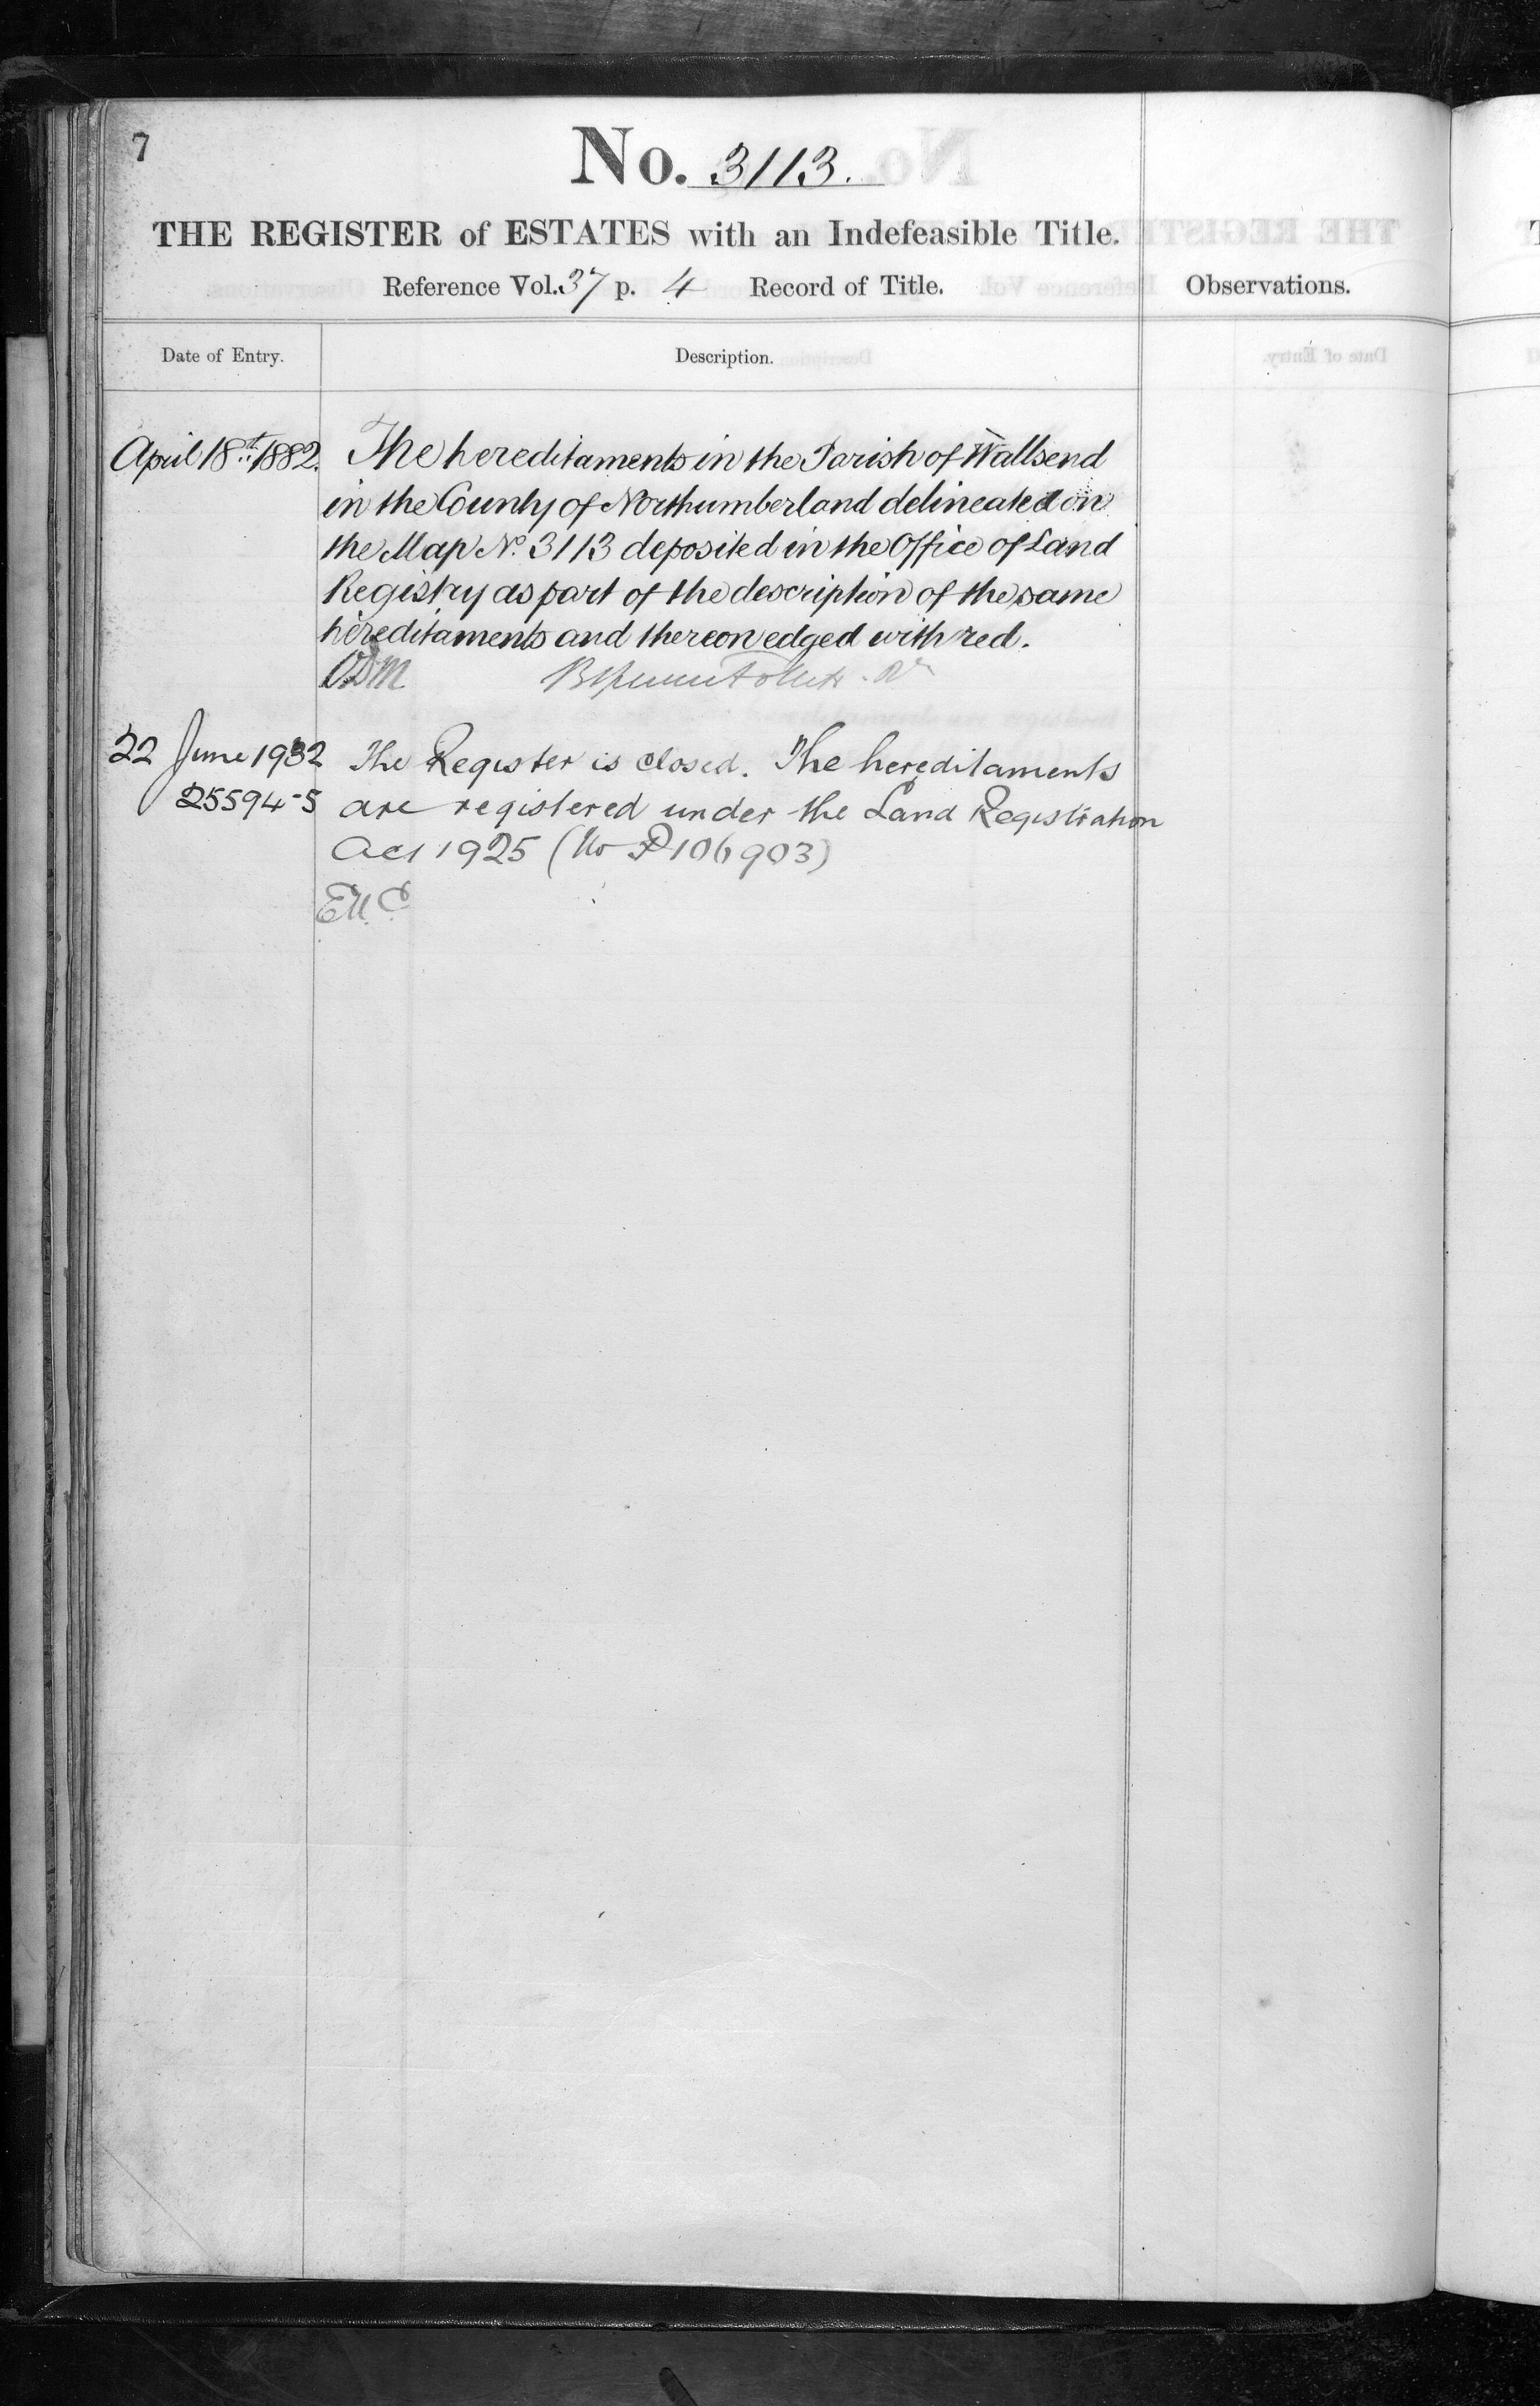 7
No. 3113.
THE REGISTER of ESTATES with an Indefeasible Title.
Reference Vol. 37 p. 4 Record of Title.
Observations.
Date of Entry.
Description.
April 18th 1882.
The hereditaments in the Parish of Wallsend
in the County of Northumberland delineated on
the Map No. 3113 deposited in the Office of Land
Registry as part of the description of the same
hereditaments and thereon edged with red.
22 June 1932
25594-5
The Register is closed. The hereditaments
are registered under the Land Registration
Act 1925 (No P106903)